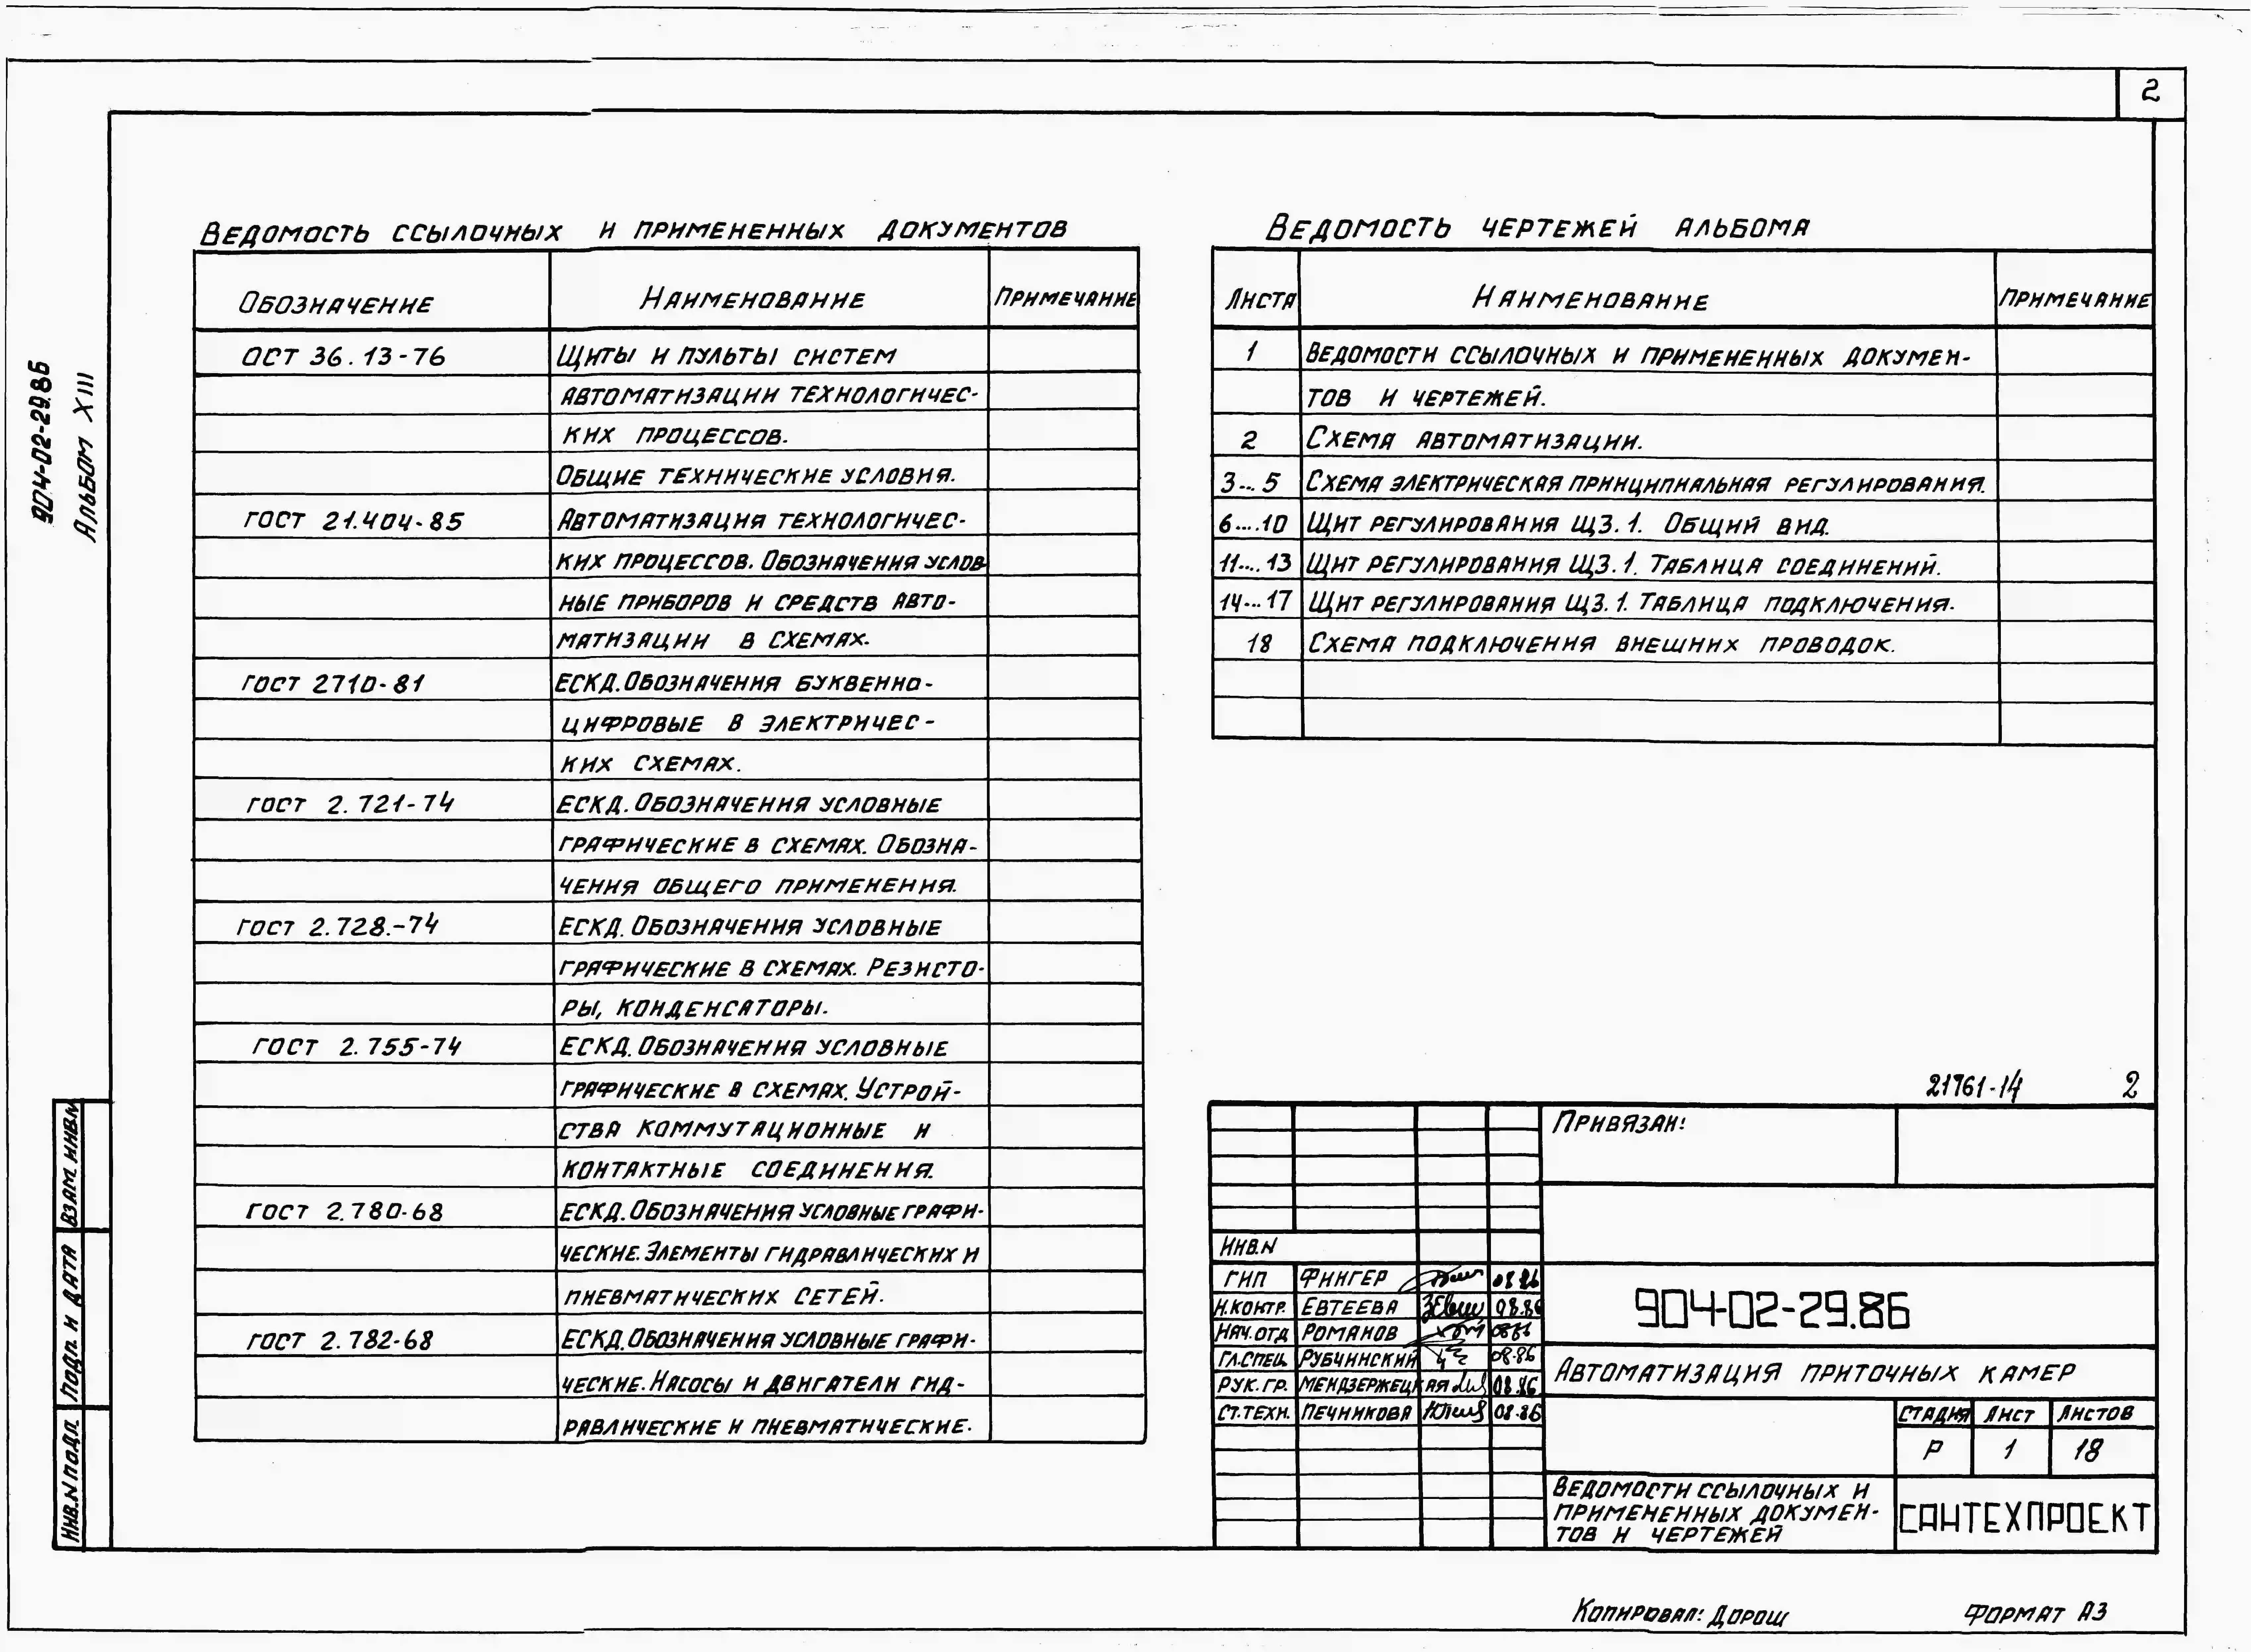 2
904-02-29.86
Альбом XIII
Ведомость ссылочных и примененных документов
Обозначение Наименование Примечание
ОСТ 36.13-76 Щиты и пульты систем
автоматизации технологичес-
ких процессов.
Общие технические условия.
ГОСТ 21.404-85 Автоматизация технологичес-
ких процессов. Обозначения услов-
ные приборов и средств авто-
матизации в схемах.
ГОСТ 2710-81 ЕСКД. Обозначения буквенно-
цифровые в электричес-
ких схемах.
ГОСТ 2.721-74 ЕСКД. Обозначения условные
графические в схемах. Обозна-
чения общего применения.
ГОСТ 2.728.-74 ЕСКД. Обозначения условные
графические в схемах. Резисто-
ры, конденсаторы.
ГОСТ 2.755-74 ЕСКД. Обозначения условные
графические в схемах. Устрой-
ства коммутационные и
контактные соединения.
ГОСТ 2.780-68 ЕСКД. Обозначения условные графи-
ческие. Элементы гидравлических и
пневматических сетей.
ГОСТ 2.782-68 ЕСКД. Обозначения условные графи-
ческие. Насосы и двигатели гид-
равлические и пневматические.
Ведомость чертежей альбома
Листа Наименование Примечание
1 Ведомости ссылочных и примененных докумен-
тов и чертежей.
2 Схема автоматизации.
3...5 Схема электрическая принципиальная регулирования.
6....10 Щит регулирования ЩЗ.1. Общий вид.
11....13 Щит регулирования ЩЗ.1. Таблица соединений.
14...17 Щит регулирования ЩЗ.1. Таблица подключения.
18 Схема подключения внешних проводок.
21761-14 2
Привязан:
Инв.N
ГИП Фингер 08.86
Н.контр. Евтеева 08.86
Нач.отд Романов 08.86
Гл.спец. Рубчинский 08.86
Рук.гр. Мендзержецкая 08.86
Ст.техн. Печникова 08.86
904-02-29.86
Автоматизация приточных камер
Стадия Лист Листов
Р 1 18
Ведомости ссылочных и
примененных докумен-
тов и чертежей
САНТЕХПРОЕКТ
Взам. инв.N
Подп. и дата
Инв.N подл.
Копировал: Дорощ
Формат А3